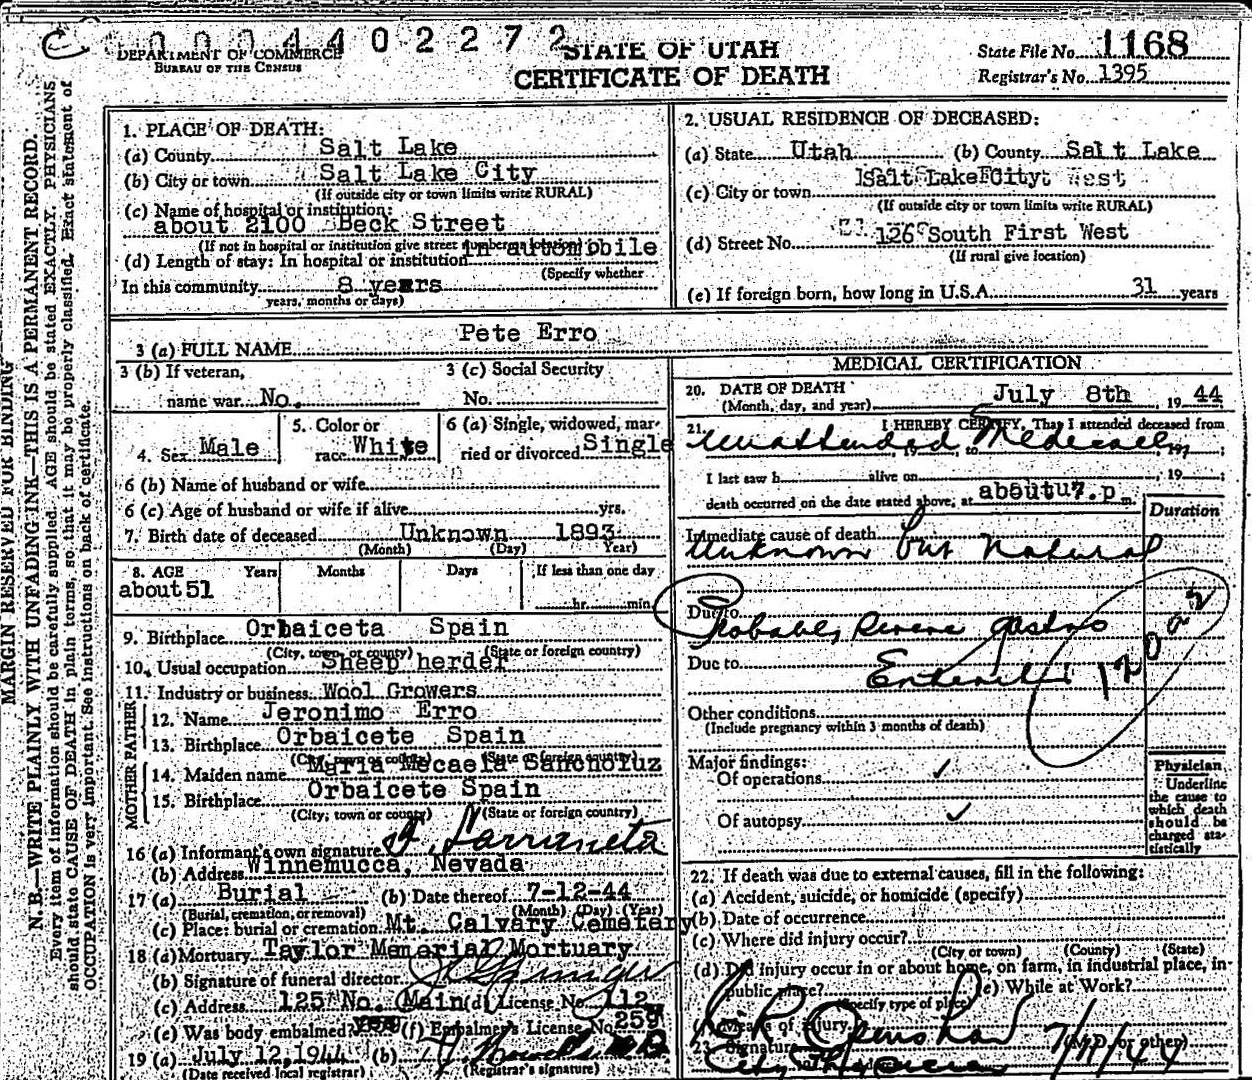 0 0 0 4 4 0 2 2 7 2
DEPARTMENT OF COMMERCE
BUREAU OF THE CENSUS
STATE OF UTAH
CERTIFICATE OF DEATH
State File No. 1168
Registrar's No. 1395
MARGIN RESERVED FOR BINDING
N. B.—WRITE PLAINLY WITH UNFADING INK—THIS IS A PERMANENT RECORD.
Every item of information should be carefully supplied. AGE should be stated EXACTLY. PHYSICIANS
should state CAUSE OF DEATH in plain terms, so that it may be properly classified. Exact statement of
OCCUPATION is very important. See instructions on back of certificate.
1. PLACE OF DEATH:
(a) County Salt Lake
(b) City or town Salt Lake City
(If outside city or town limits write RURAL)
(c) Name of hospital or institution:
about 2100 Beck Street
(If not in hospital or institution give street number or location)
in automobile
(d) Length of stay: In hospital or institution
(Specify whether
In this community 8 years
years, months or days)
2. USUAL RESIDENCE OF DECEASED:
(a) State Utah (b) County Salt Lake
(c) City or town Salt Lake City
(If outside city or town limits write RURAL)
(d) Street No. 126 South First West
(If rural give location)
(e) If foreign born, how long in U.S.A. 31 years
3 (a) FULL NAME Pete Erro
3 (b) If veteran,
name war No.
3 (c) Social Security
No.
4. Sex Male
5. Color or
race White
6 (a) Single, widowed, mar-
ried or divorced Single
6 (b) Name of husband or wife
6 (c) Age of husband or wife if alive yrs.
7. Birth date of deceased Unknown 1893
(Month) (Day) Year)
8. AGE Years Months Days If less than one day
about 51
hr. min.
9. Birthplace Orbaiceta Spain
(City, town, or county) (State or foreign country)
10. Usual occupation Sheep herder
11. Industry or business Wool Growers
FATHER
12. Name Jeronimo Erro
13. Birthplace Orbaicete Spain
(City, town or county) (State or foreign country)
MOTHER
14. Maiden name Maria Mecaela Sancholuz
15. Birthplace Orbaicete Spain
(City, town or county) (State or foreign country)
16 (a) Informant's own signature F. Larraneta
(b) Address Winnemucca, Nevada
17 (a) Burial (b) Date thereof 7-12-44
(Burial, cremation, or removal) (Month) (Day) (Year)
(c) Place: burial or cremation Mt. Calvary Cemetery
18 (a) Mortuary Taylor Memorial Mortuary
(b) Signature of funeral director
(c) Address 125 No. Main (d) License No. 112
(e) Was body embalmed? yes (f) Embalmer's License No. 259
19 (a) July 12, 1944 (b)
(Date received local registrar) (Registrar's signature)
MEDICAL CERTIFICATION
20. DATE OF DEATH July 8th 19 44
(Month, day, and year)
21. I HEREBY CERTIFY, That I attended deceased from
Unattended Medical, 19 ;
I last saw h alive on , 19 ;
death occurred on the date stated above, at about 7.p m.
Duration
Immediate cause of death
Unknown but Natural
Due to
Probably Severe Gastro
Due to
Enteritis 120
Other conditions
(Include pregnancy within 3 months of death)
Major findings:
Of operations ✓
Of autopsy ✓
Physician
Underline
the cause to
which death
should be
charged sta-
tistically
22. If death was due to external causes, fill in the following:
(a) Accident, suicide, or homicide (specify)
(b) Date of occurrence
(c) Where did injury occur?
(City or town) (County) (State)
(d) Did injury occur in or about home, on farm, in industrial place, in
public place? (e) While at Work?
(Specify type of place)
Means of injury
23. Signature Openshaw (M.D. or other)
City Physician 7/11/44